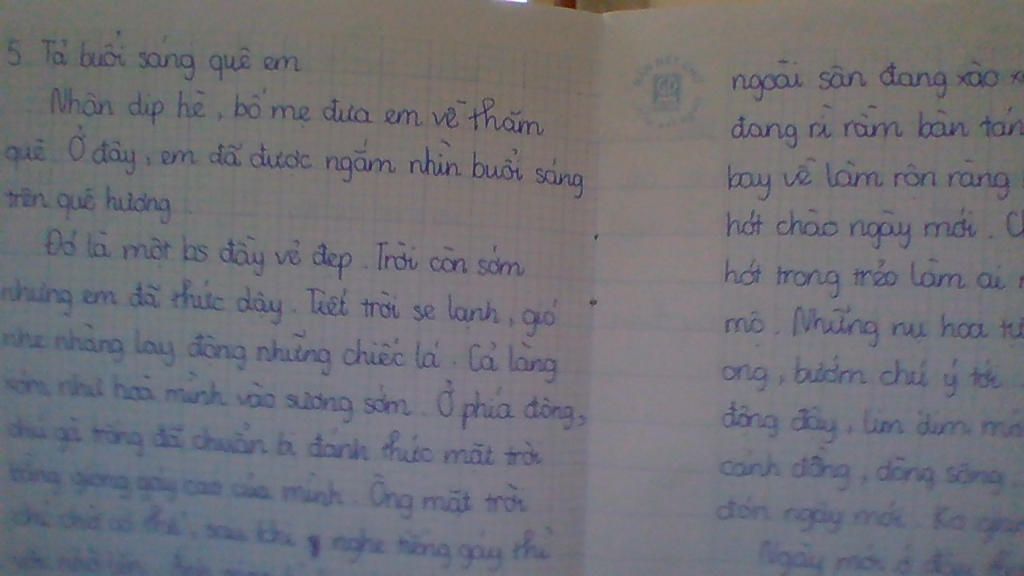 5 Tả buổi sáng quê em
Nhân dịp hè, bố mẹ đưa em về thăm
quê. Ở đây, em đã được ngắm nhìn buổi sáng
trên quê hương
Đó là một bs đầy vẻ đẹp. Trời còn sớm
nhưng em đã thức dậy. Tiết trời se lạnh, gió
nhẹ nhàng lay động những chiếc lá. Cả làng
xóm như hoà mình vào sương sớm. Ở phía đông,
chú gà trống đã chuẩn bị đánh thức mặt trời
bằng giọng gáy cao của mình. Ông mặt trời
chỉ chờ có thế, sau khi nghe tiếng gáy thì
ngoài sân đang xào
đang rì rầm bàn tán
bay về làm rộn ràng
hót chào ngày mới.
hót trong trẻo làm ai
mộ. Những nụ hoa
ong, bướm chú ý tới
động đậy, lim dim
cánh đồng, dòng sông
đón ngày mới.
Ngày mới ở đây